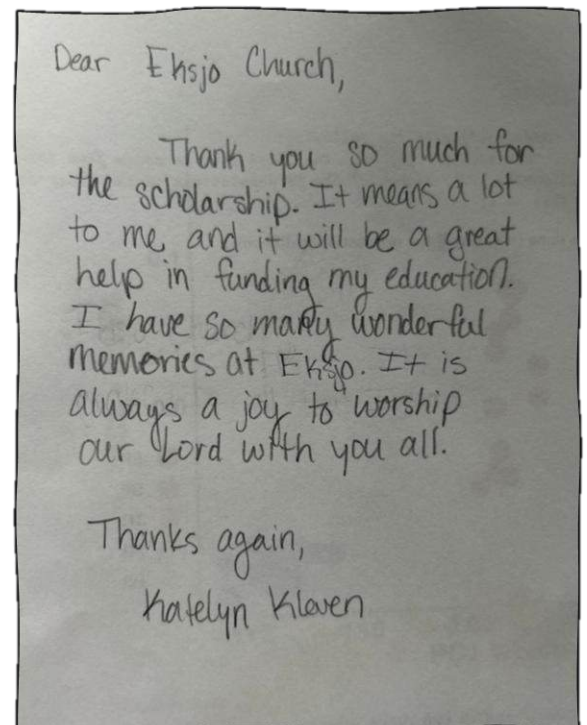 Dear Eksjo Church,
Thank you so much for
the scholarship. It means a lot
to me and it will be a great
help in funding my education.
I have so many wonderful
memories at Eksjo. It is
always a joy to worship
our Lord with you all.
Thanks again,
Katelyn Kleven